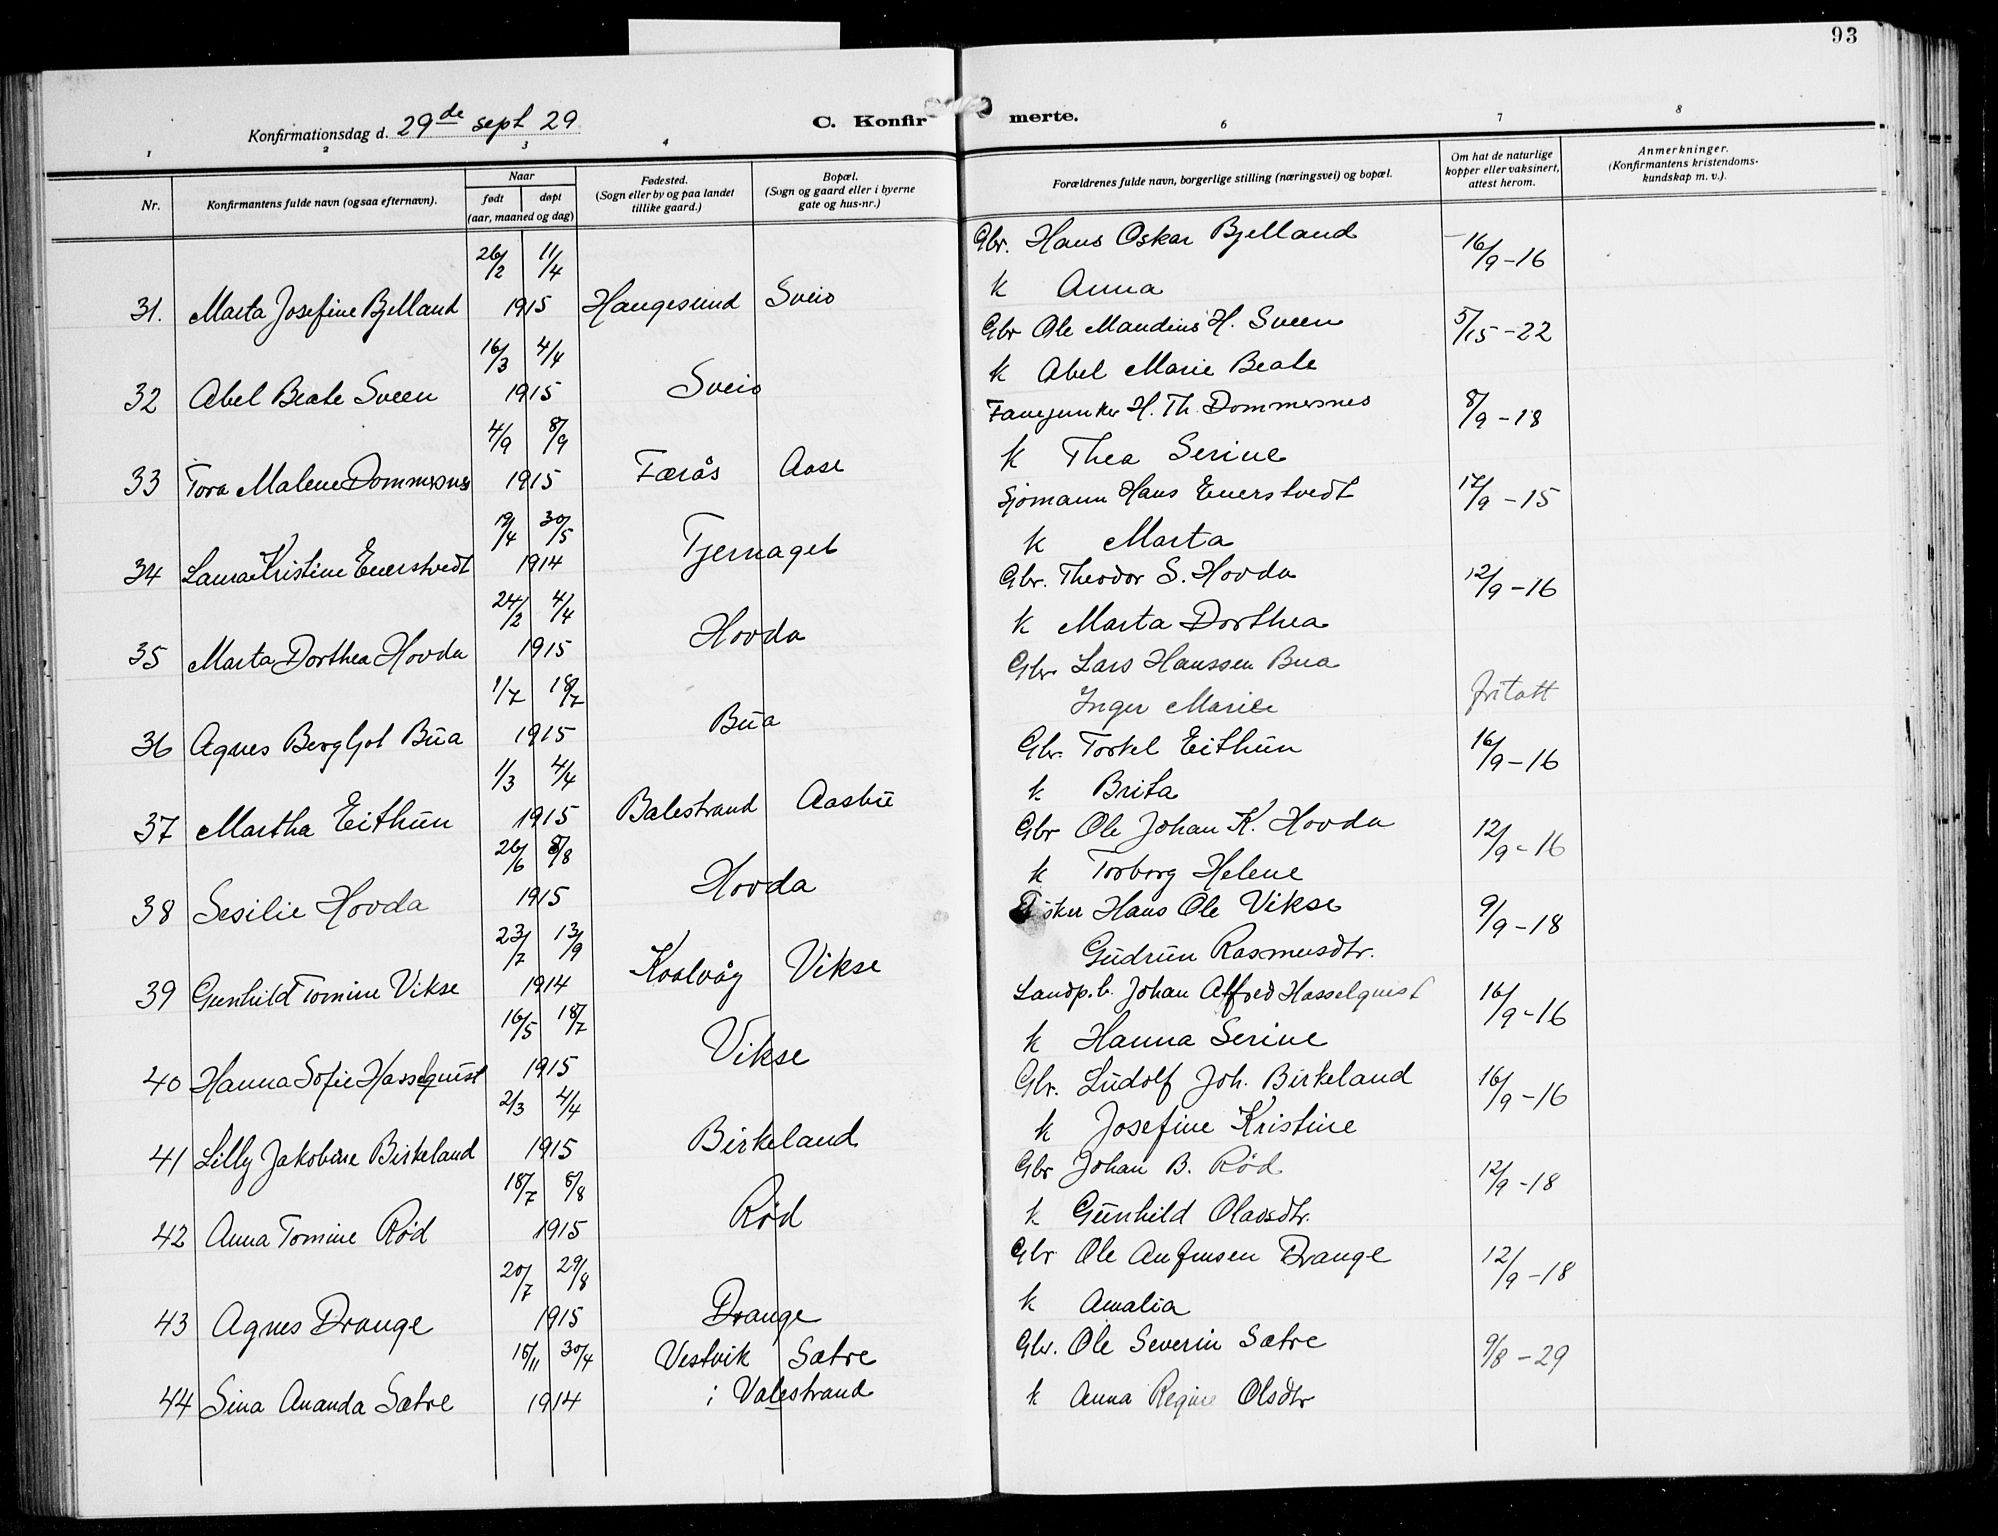 93
Konfirmationsdag d. 29de sept 29
C. Konfirmerte.
1 2 3 4 6 7 8
Nr.
Konfirmantens fulde navn (ogsaa efternavn).
Naar
født døpt
(aar, maaned og dag)
Fødested.
(Sogn eller by og paa landet
tillike gaard.)
Bopæl.
(Sogn og gaard eller i byerne
gate og hus-nr.)
Forældrenes fulde navn, borgerlige stilling (næringsvei) og bopæl.
Om hat de naturlige
kopper eller vaksinert,
attest herom.
Anmerkninger.
(Konfirmantens kristendoms-
kundskap m. v.).
26/2 11/4 Gbr. Hans Oskar Bjelland 16/9-16
31. Marta Josefine Bjelland 1915 Haugesund Sveio k Anna
16/3 4/4 Gbr Ole Mandius H. Sveen 5/15-22
32 Abel Beate Sveen 1915 Sveio k Abel Marie Beate
4/9 8/9 Fanejunker H. Th. Dommersnes 8/9-18
33 Tora Malene Dommersnes 1915 Færås Aase k Thea Serine
19/4 30/5 Sjømann Hans Enerstvedt 17/9-15
34 Laura Kristine Enerstvedt 1914 Tjernagel k Marta
24/2 4/4 Gbr. Theodor S. Hovda 12/9-16
35 Marta Dorthea Hovda 1915 Hovda k Marta Dorthea
1/7 18/7 Gbr Lars Hanssen Bua fritatt
36 Agnes Bergljot Bua 1915 Bua Inger Marie
1/3 4/4 Gbr. Torkel Eithun 16/9-16
37 Martha Eithun 1915 Balestrand Aasbu k Brita
26/6 8/8 Gbr Ole Johan K. Hovda 12/9-16
38 Sesilie Hovda 1915 Hovda k Torborg Helene
23/7 13/9 Fisker Hans Ole Vikse 9/9-18
39 Gunhild Tomine Vikse 1914 Koalvåg Vikse Gudrun Rasmusdtr.
16/5 18/7 Landp.b. Johan Alfred Hasselquist 16/9-16
40 Hanna Sofie Hasselquist 1915 Vikse k Hanna Serine
2/3 4/4 Gbr. Ludolf Joh. Birkeland 16/9-16
41 Lilly Jakobine Birkeland 1915 Birkeland k Josefine Kristine
18/7 8/8 Gbr Johan B. Rød 12/9-18
42 Anna Tomine Rød 1915 Rød k Gunhild Olavsdtr.
20/7 29/8 Gbr Ole Anfinsen Drange 12/9-18
43 Agnes Drange 1915 Drange k Amalia
15/11 30/4 Vestvik Sætre Gbr. Ole Severin Sætre 9/8-29
44 Sina Ananda Sætre 1914 i Valestrand k Anna Regine Olsdtr